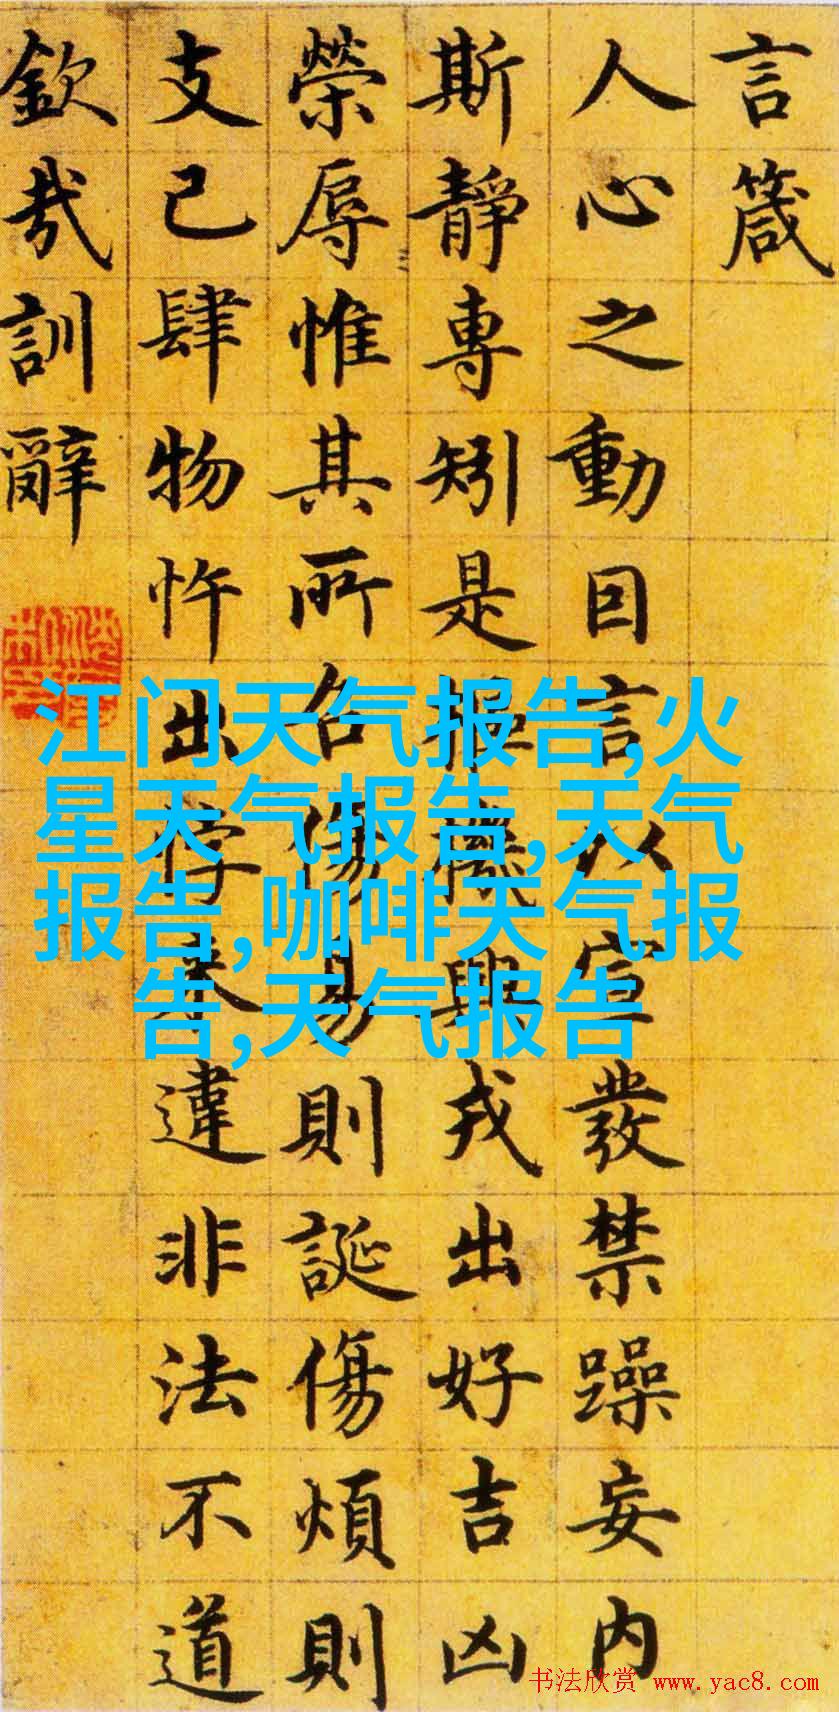 言箴
人心之動因言以宣發禁躁妄内
斯靜專矧是樞機興戎出好吉凶
榮辱惟其所召傷易則誕傷煩則
支己肆物忤出悖來違非法不道
欽哉訓辭
江门天气报告,火
星天气报告,天气
报告,咖啡天气报
告,天气报告
书法欣赏 www.yac8.com